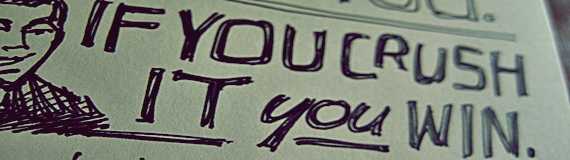 IF YOU CRUSH
IT you WIN.